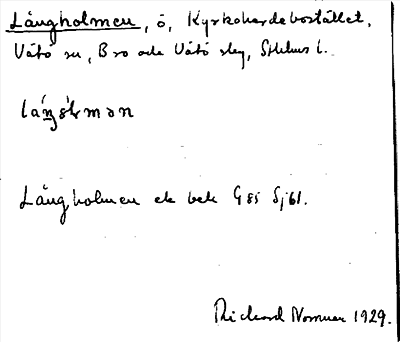 Långholmen, ö, Kyrkoherdebostället,
Vätö sn, Bro och Vätö slg, Sthlms l.
Långholmen ek bek G 85 Sj 61.
Richard Norman 1929.